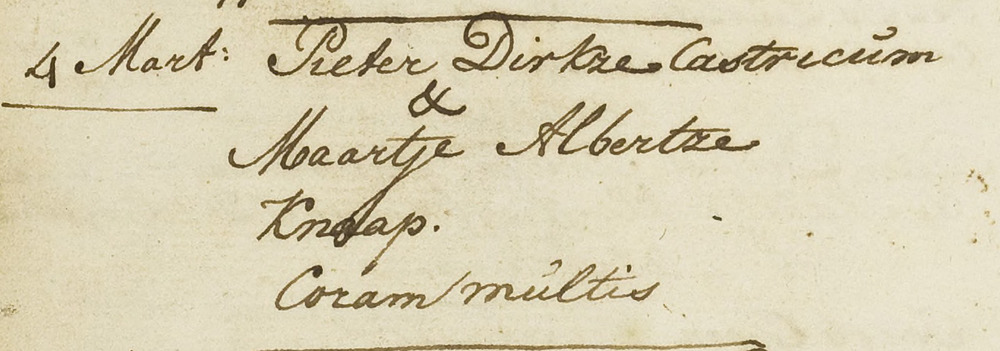 4 Mart: Pieter Dirkze Castricum
&
Maartje Albertze
Knaap.
Coram multis